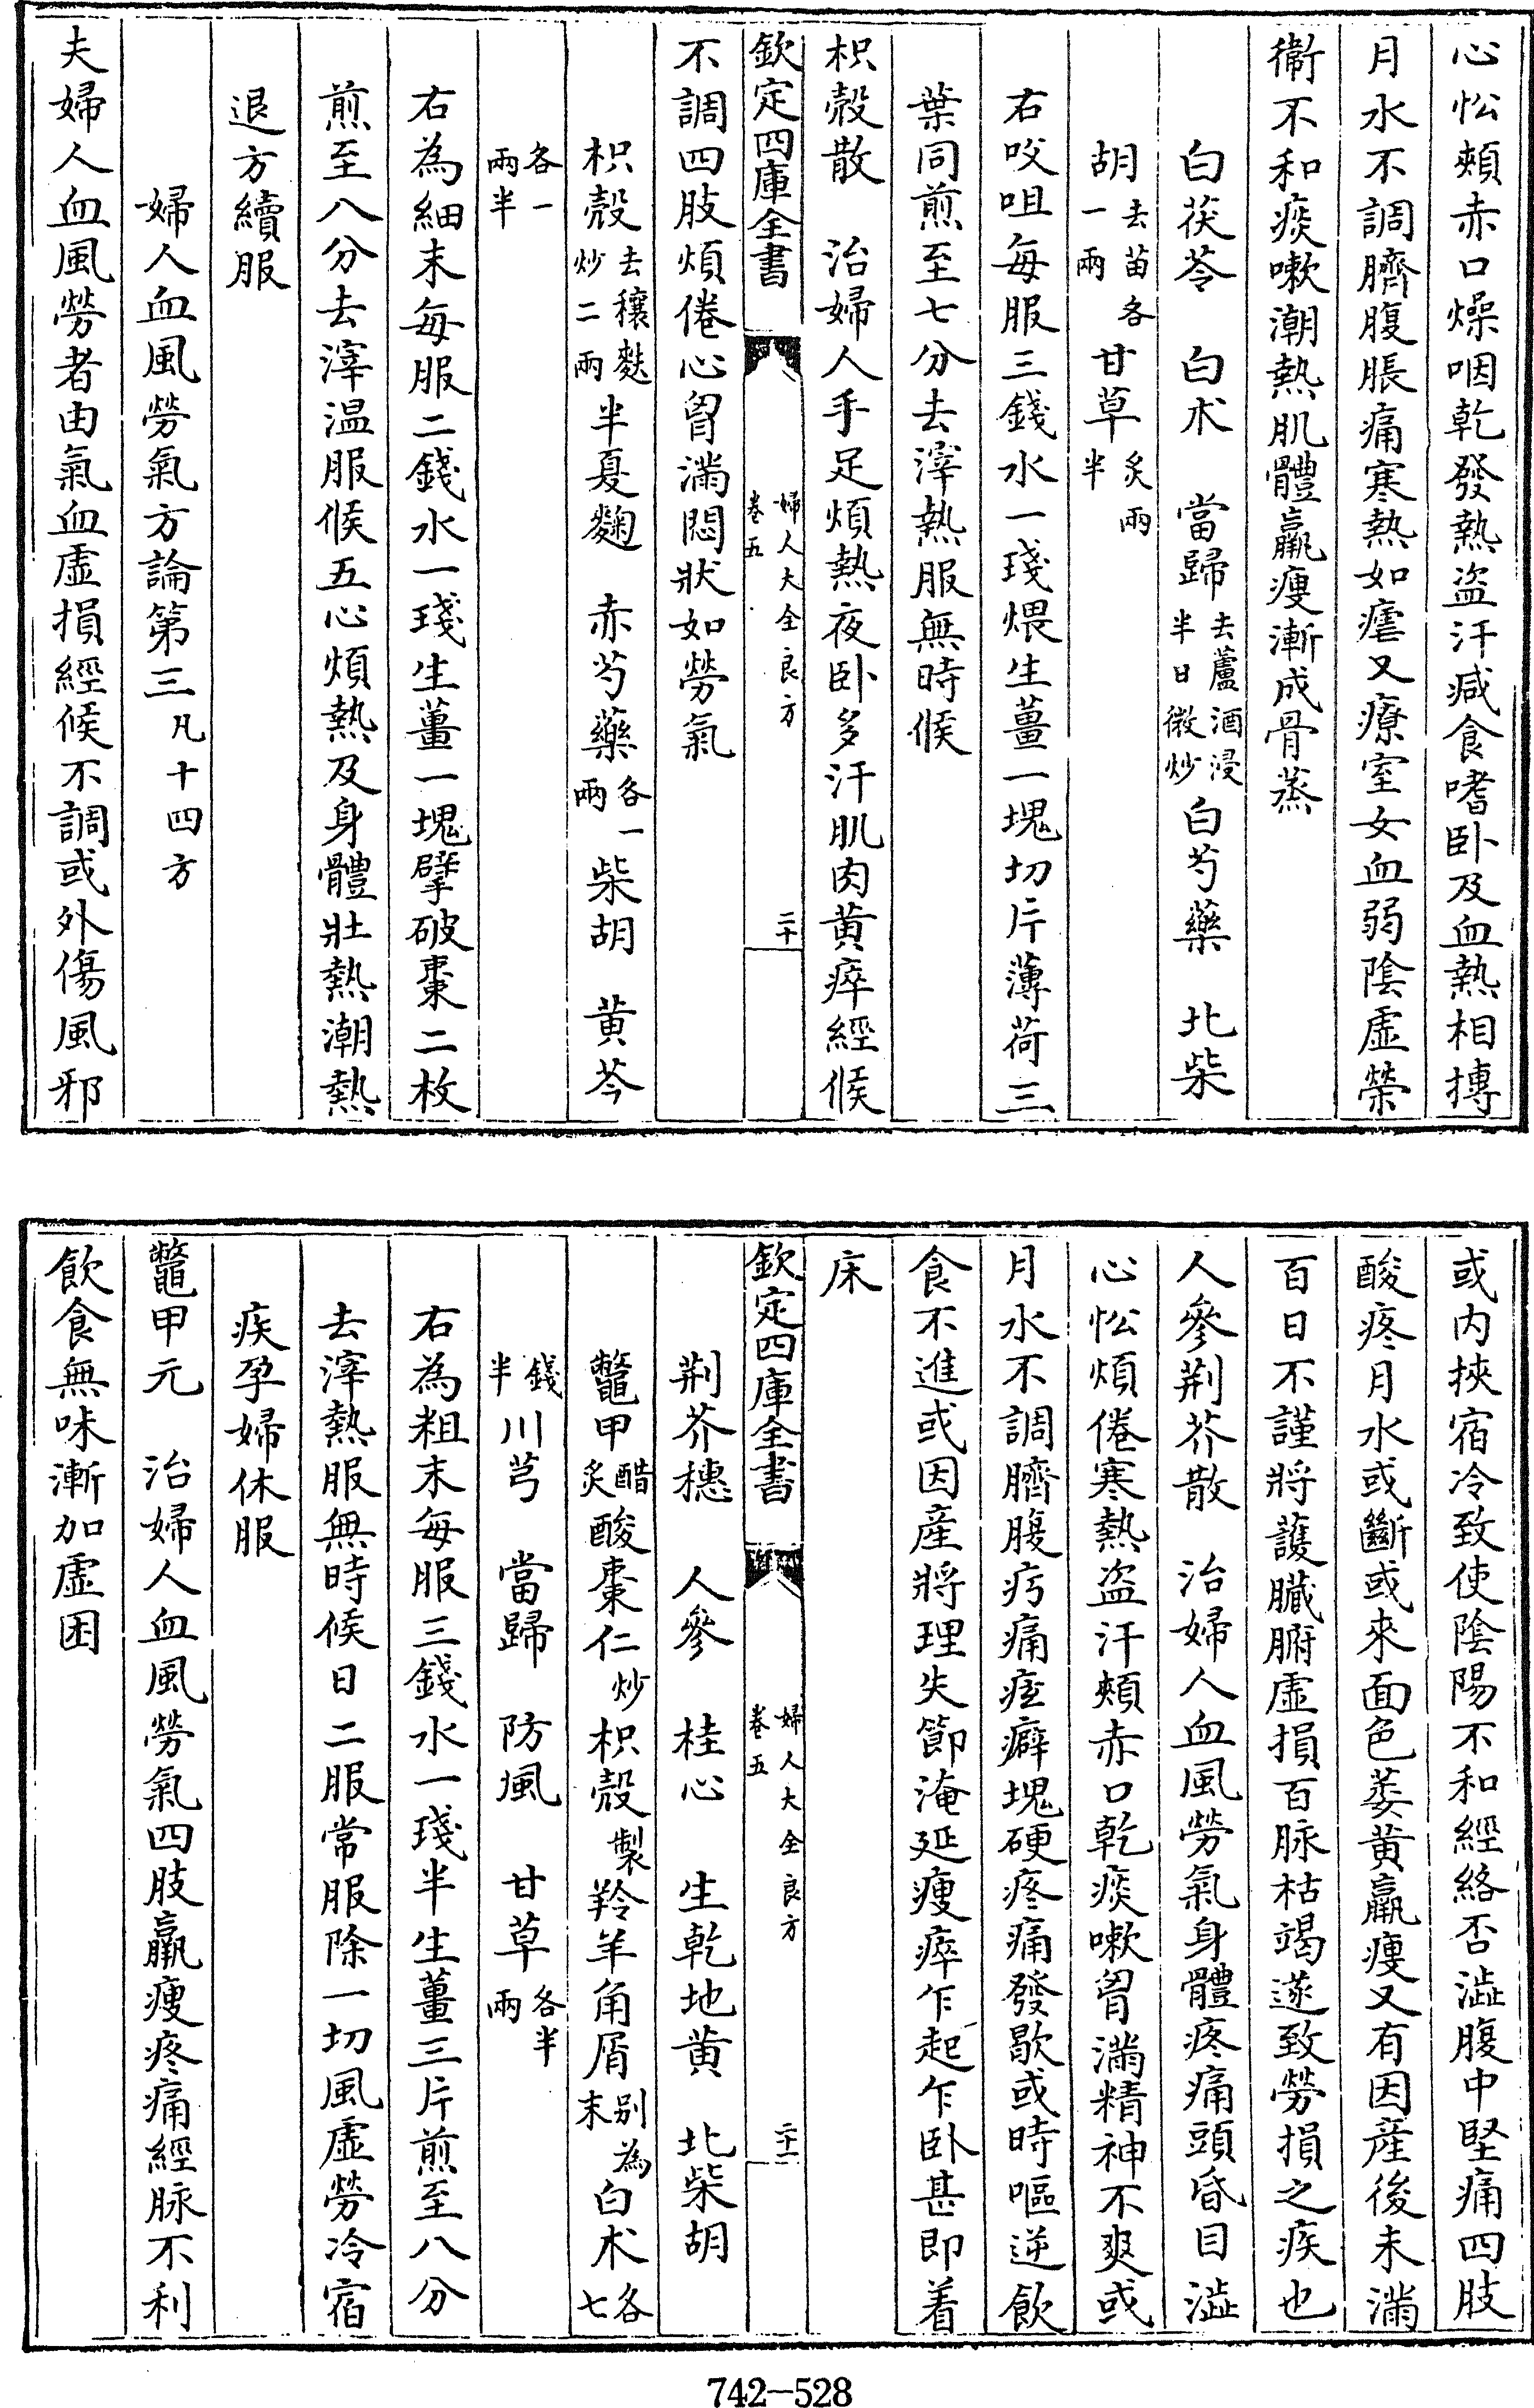 心忪頰赤口燥咽乾發熱盜汗減食嗜卧及血熱相搏
月水不調臍腹脹痛寒熱如瘧又療室女血弱陰虛榮
衞不和痰嗽潮熱肌體羸瘦漸成骨蒸
白茯苓　白术　當歸去蘆酒浸半日微炒白芍藥　北柴
胡去苗各一兩甘草炙半兩
右㕮咀每服三錢水一琖煨生薑一塊切片薄荷三
葉同煎至七分去滓熱服無時候
枳殼散　治婦人手足煩熱夜卧多汗肌肉黄瘁經候
欽定四庫全書　婦人大全良方卷五　二十
不調四肢煩倦心胷滿悶狀如勞氣
枳殼去穰麩炒二兩半夏麴　赤芍藥各一兩柴胡　黄芩
各一兩半
右為細末每服二錢水一琖生薑一塊擘破棗二枚
煎至八分去滓温服候五心煩熱及身體壯熱潮熱
退方續服
婦人血風勞氣方論第三凡十四方
夫婦人血風勞者由氣血虛損經候不調或外傷風邪
或内挾宿冷致使陰陽不和經絡否澁腹中堅痛四肢
酸疼月水或斷或來面色萎黄羸瘦又有因産後未滿
百日不謹將護臟腑虛損百脉枯竭遂致勞損之疾也
人參荆芥散　治婦人血風勞氣身體疼痛頭昏目澁
心忪煩倦寒熱盜汗頰赤口乾痰嗽胷滿精神不爽或
月水不調臍腹㽲痛痃癖塊硬疼痛發歇或時嘔逆飲
食不進或因産將理失節淹延瘦瘁乍起乍卧甚即着
床
欽定四庫全書　婦人大全良方卷五　二十一
荆芥穗　人參　桂心　生乾地黄　北柴胡
鼈甲醋炙酸棗仁炒枳殼製羚羊角屑别為末白术各七
錢半川芎　當歸　防風　甘草各半兩
右為粗末每服三錢水一琖半生薑三片煎至八分
去滓熱服無時候日二服常服除一切風虛勞冷宿
疾孕婦休服
鼈甲元　治婦人血風勞氣四肢羸瘦疼痛經脉不利
飲食無味漸加虛困
742—528